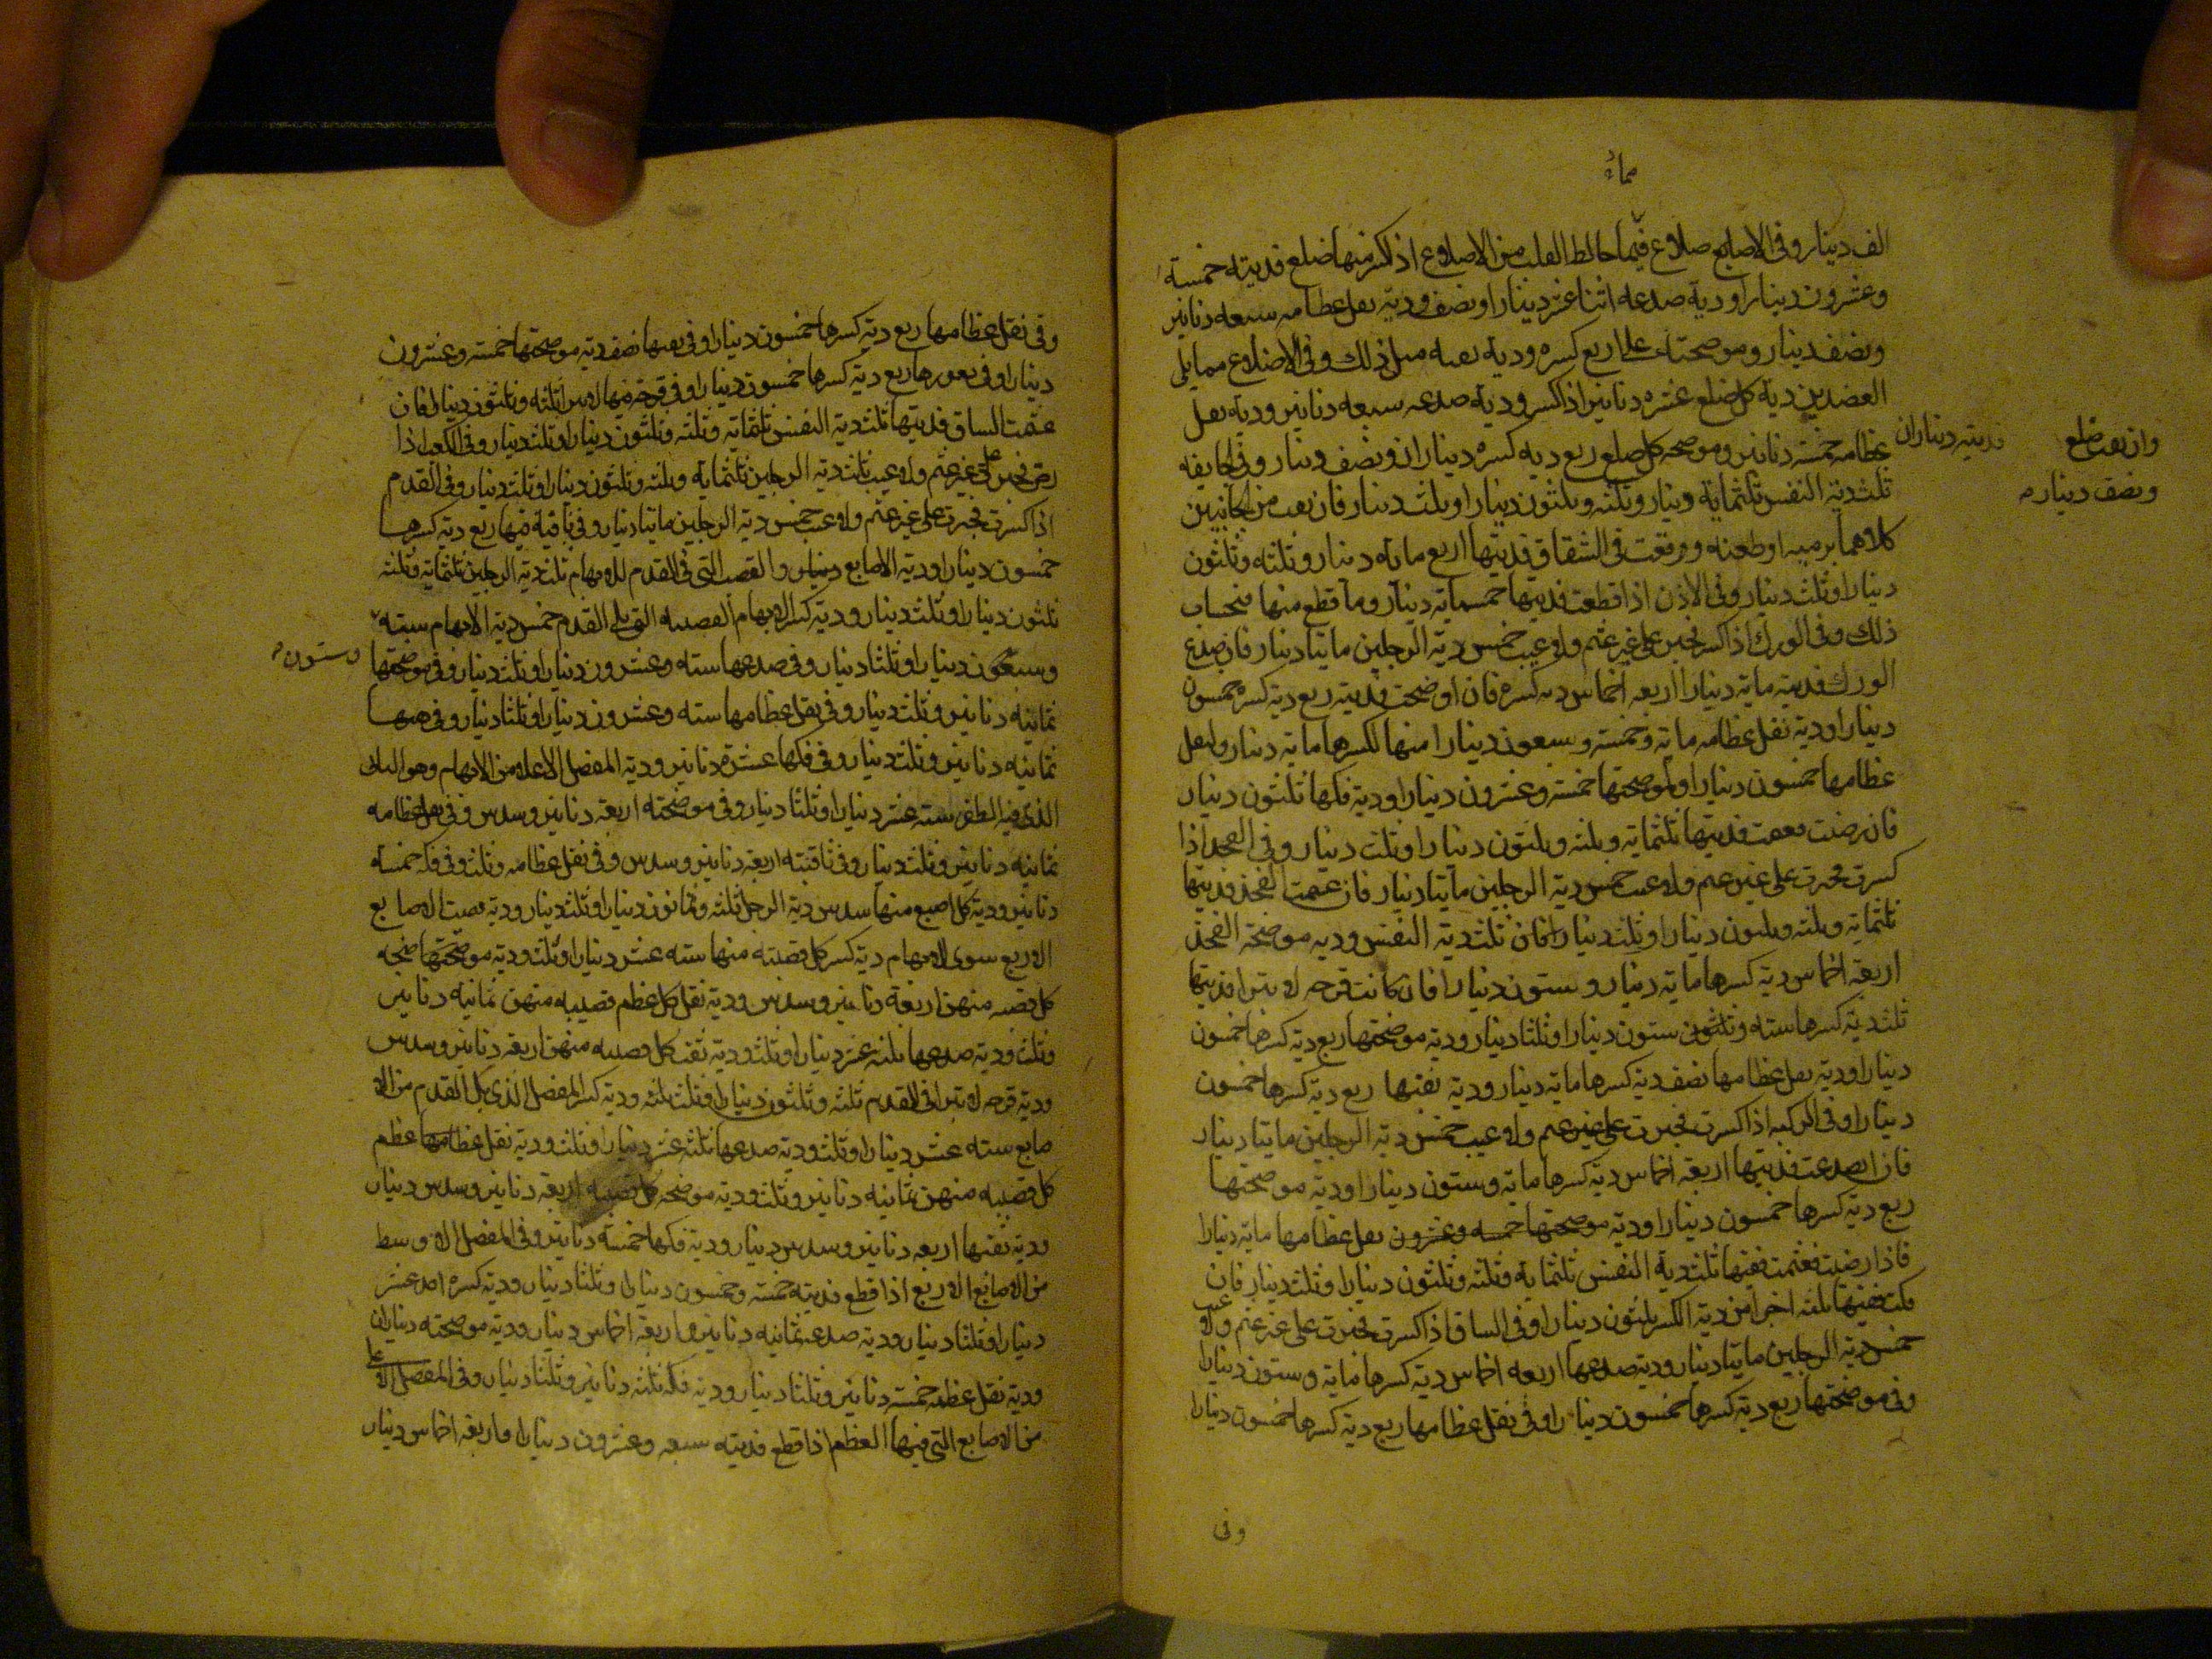 الف دينار وفى الاضلاع فيما خالط القلب من الاضلاع اذا كسر منها ضلع فديته خمسة
وعشرون دينارا ودية صدعه اثنا عشر دينارا ونصف ودية نقل عظامه سبعة دنانير
ونصف دينار وموضحته على ربع كسره ودية نقبه مثل ذلك وفى الاضلاع مما يلى
العضدين دية كل ضلع عشرة دنانير اذا كسر ودية صدعه سبعة دنانير ودية نقل
عظامه خمسة دنانير وموضحة كل ضلع ربع دية كسره ديناران ونصف دينار وفى الجايفة
وان نقب ضلع فديته ديناران
ونصف دينار
ثلث دية النفس ثلثماية دينار وثلثه وثلثون دينارا وثلث دينار فان نقب من الجانبين
كلاهما برمية او طعنة ووقعت فى الشقاق فديتها اربع ماية دينار وثلثه وثلثون
دينارا وثلث دينار وفى الاذن اذا قطعت فديتها خمسماية دينار وما قطع منها فبحساب
ذلك وفى الورك اذا كسر فجبر على غير عثم ولا عيب خمس دية الرجلين مايتا دينار فان صدع
الورك فديته ماية دينار اربعة اخماس دية كسره فان اوضحت فديته ربع دية كسره خمسون
دينارا ودية نقل عظامه ماية وخمسة وسبعون دينارا منها لكسرها ماية دينار ولنقل
عظامها خمسون دينارا ولموضحتها خمسة وعشرون دينارا ودية فكها ثلثون دينار
فان رضت فعثمت فديتها ثلثماية وثلثه وثلثون دينارا وثلث دينار وفى الفخذ اذا
كسرت فجبرت على غير عثم ولا عيب خمس دية الرجلين مايتا دينار فان عثمت الفخذ فديتها
ثلثماية وثلثه وثلثون دينارا وثلث دينار فان ثلث دية النفس ودية موضحة الفخذ
اربعة اخماس دية كسرها ماية دينار وستون دينارا فان كانت قرحة لا تبرا فديتها
ثلث دية كسرها ستة وستون دينارا وثلثا دينار ودية موضحتها ربع دية كسرها خمسون
دينارا ودية نقل عظامها نصف دية كسرها ماية دينار ودية نقبها ربع دية كسرها خمسون
دينارا وفى الركبة اذا كسرت فجبرت على غير عثم ولا عيب خمس دية الرجلين مايتا دينار
فان انصدعت فديتها اربعة اخماس دية كسرها ماية وستون دينارا ودية موضحتها
ربع دية كسرها خمسون دينارا ودية نقل عظامها ماية دينارا
فاذا رضت فعثمت ففيها ثلث دية النفس ثلثماية وثلثه وثلثون دينارا وثلث دينار فان
فكت ففيها ثلثة اجزا من دية الكسر ثلثون دينارا وفى الساق اذا كسرت فجبرت على غير عثم ولا عيب
خمس دية الرجلين مايتا دينار ودية صدعها اربعة اخماس دية كسرها ماية وستون دينارا
وفى موضحتها ربع دية كسرها خمسون دينارا وفى نقل عظامها ربع دية كسرها خمسون دينارا
وفى
وفى نقل عظامها ربع دية كسرها خمسون دينارا وفى نقبها نصف دية موضحتها خمسة وعشرون
دينارا وفى نفورها ربع دية كسرها خمسون دينارا وفى قرحة فيها لا تبرا ثلثه وثلثون دينارا فان
عثمت الساق فديتها ثلث دية النفس ثلثماية وثلثه وثلثون دينارا وثلث دينار وفى الكعب اذا
رض فجبر على غير عثم ولا عيب ثلث دية الرجلين ثلثماية وثلثه وثلثون دينارا وثلث دينار وفى القدم
اذا كسرت فجبرت على غير عثم ولا عيب خمس دية الرجلين مايتا دينار وفى ناقبة فيها ربع دية كسرها
خمسون دينارا ودية الاصابع والقصب التى فى القدم للابهام ثلث دية الرجلين ثلثماية وثلثه
ثلثون دينارا وثلث دينار ودية كسر الابهام القصبة التى تلى القدم خمس دية الابهام ستة
وستون دينارا وثلثا دينار وفى صدعها ستة وعشرون دينارا وثلث دينار وفى موضحتها
ثمانية دنانير وثلث دينار وفى نقل عظامها ستة وعشرون دينارا وثلثا دينار وفى نقبها
ثمانية دنانير وثلث دينار وفى فكها عشرة دنانير ودية المفصل الاعلى من الابهام وهو الثانى
الذى فيه الظفر ستة عشر دينارا وثلثا دينار وفى موضحته اربعة دنانير وسدس وفى نقل عظامه
ثمانية دنانير وثلث دينار وفى ناقبته اربعة دنانير وسدس وفى نقل عظامه وثلث وفى فكه خمسة
دنانير ودية كل اصبع منها سدس دية الرجل ثلثه وثمانون دينارا وثلث دينار ودية قصب الاصابع
الاربع سوى الابهام دية كسر كل قصبة منها ستة عشر دينارا وثلث ودية موضحة
كل قصبة منهن اربعة دنانير وسدس ودية نقل كل عظم قصبة منهن ثمانية دنانير
وثلث ودية صدعها ثلثه عشر دينارا وثلث ودية نقب كل قصبة منهن اربعة دنانير وسدس
ودية قرحة لا تبرا فى القدم ثلثه وثلثون دينارا وثلث ودية كسر المفصل الذى يلى القدم من الا
صابع ستة عشر دينارا وثلث ودية صدعها ثلثه عشر دينارا وثلث ودية نقل عظم
كل قصبة منهن ثمانية دنانير وثلث ودية موضحة كل قصبة اربعة دنانير وسدس دينار
ودية نقبها اربعة دنانير وسدس دينار ودية فكها خمسة دنانير وفى المفصل الاوسط
من الاصابع الاربع اذا قطع فديته خمسة وخمسون دينارا وثلثا دينار ودية كسره احد عشر
دينارا وثلثا دينار ودية صدعه ثمانية دنانير واربعة اخماس دينار ودية موضحته ديناران
ودية نقل عظمه خمسة دنانير وثلثا دينار ودية فكه ثلثه دنانير وثلثا دينار وفى المفصل الاعلى
من الاصابع التى فيها الظفر اذا قطع فديته سبعة وعشرون دينارا واربعة اخماس دينار